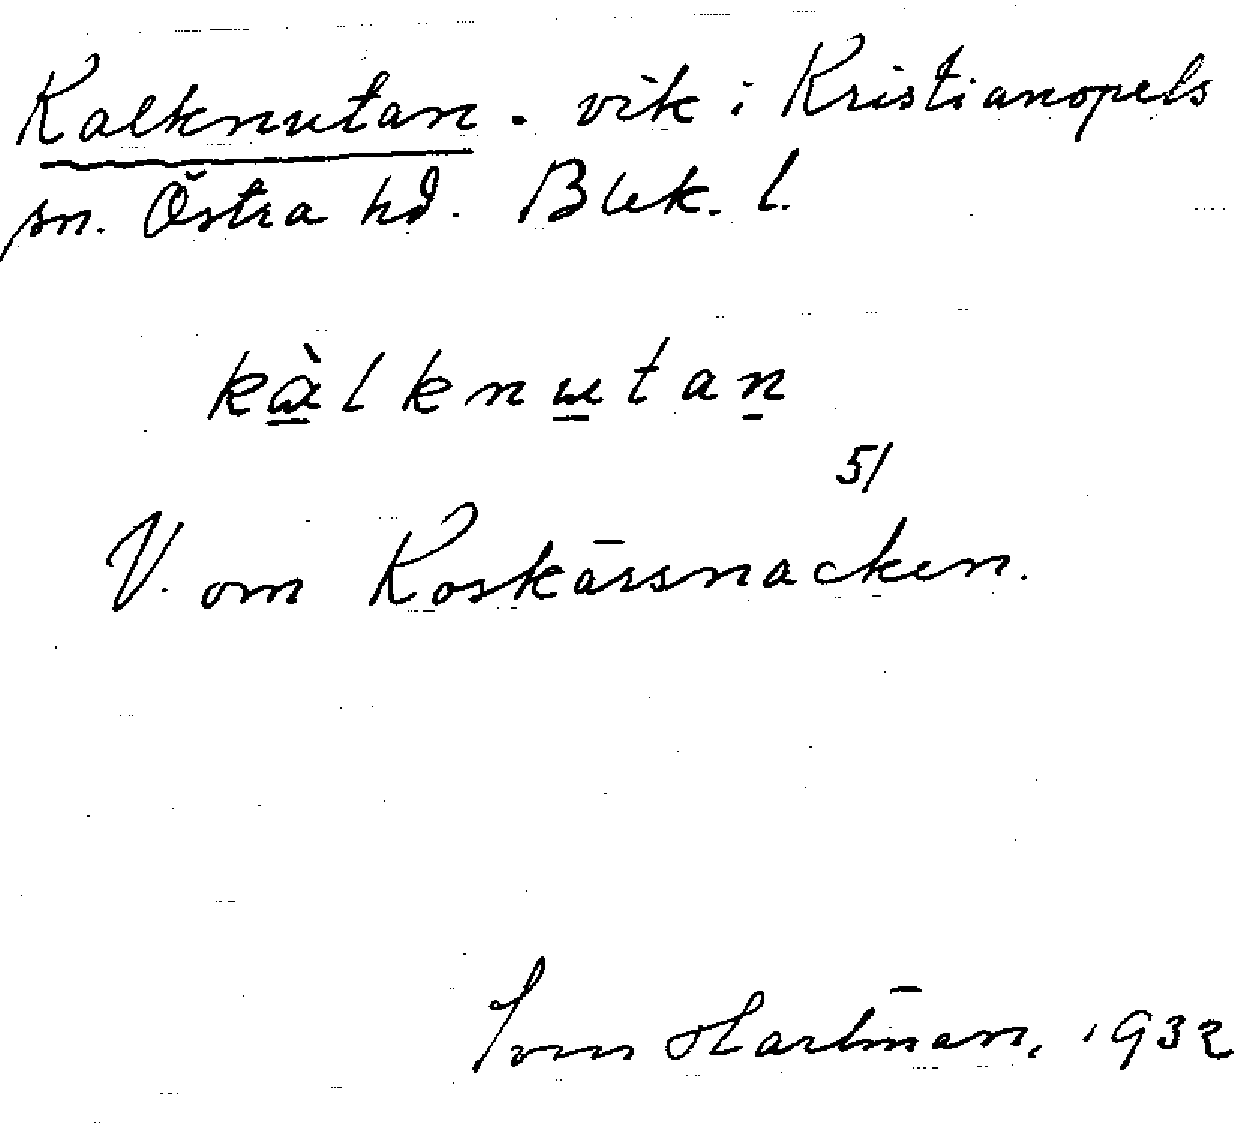 Kalknutan. vik i Kristianopels
sn. Östra hd. Blek. l.
kàlknutan
51
V. om Roskärsnacken.
Sven Hartman, 1932